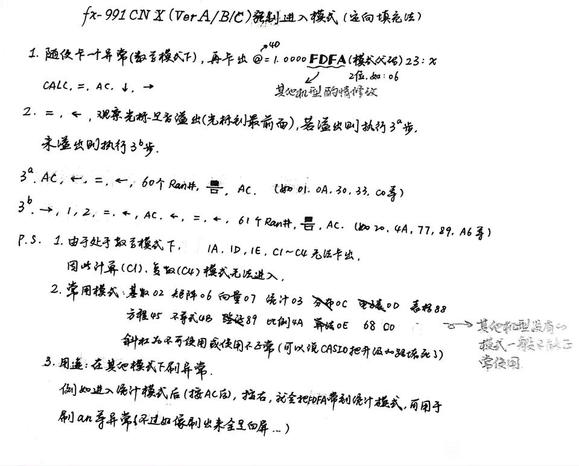 fx-991 CN X (Ver A/B/C) 强制进入模式 (定向填充法)
1. 随便卡一个异常(数学模式下), 再卡出 @=1.0000 FDFA (模式代码) 23: x
→40
2位, 如: 06
CALC, =, AC, ↓, →
其他机型酌情修改
2. =, ←, 观察光标是否溢出(光标到最前面), 若溢出则执行3ᵃ步.
未溢出则执行3ᵇ步.
3ᵃ. AC, ←, =, ←, 60个 Ran#, , AC. (如 01. 0A, 30, 33, C0等)
3ᵇ. →, 1, 2, =, ←, AC, ←, =, ←, 61个 Ran#, , AC. (如 20, 4A, 77, 89, A6等)
P.S. 1. 由于处于数学模式下, 1A, 1D, 1E, C1~C4 无法卡出,
因此计算(C1), 复数(C4)模式无法进入.
2. 常用模式: 基数02 矩阵06 向量07 统计03 分布0C 0D 表格88
方程45 不等式4B 89 比例4A 算法0E 68 C0
→ 其他机型没有的
模式一般不能正
常使用
斜杠为不可使用或使用不正常(可以说CASIO把升级和阻读死了)
3. 用途: 在其他模式下刷异常.
例如进入统计模式后(按AC后), 指右, 就会把FDFA带到统计模式, 可用于
刷an等异常(不过好像刷出来全是白屏...)